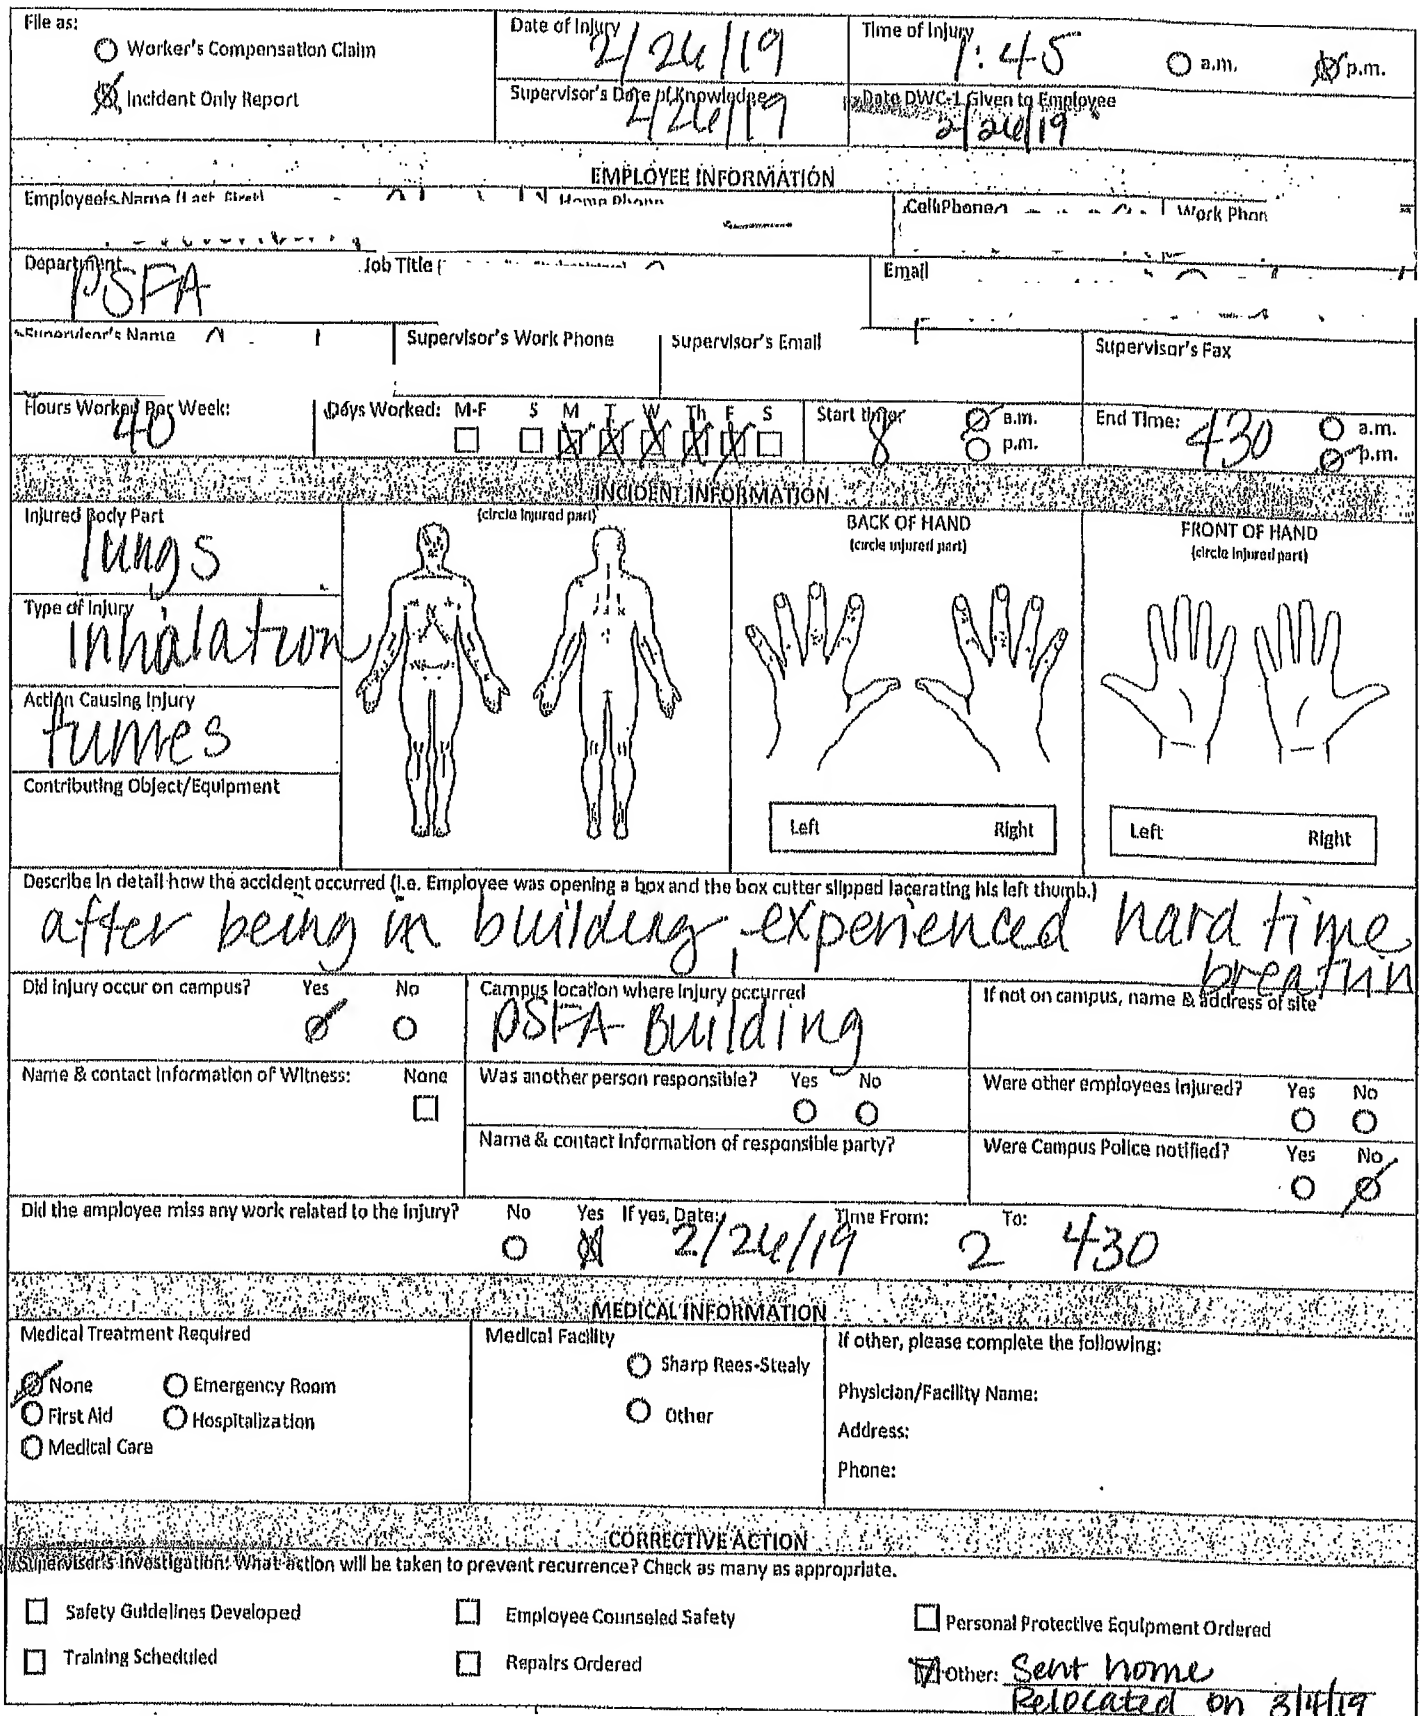 File as:
Worker's Compensation Claim
Incident Only Report
Date of Injury
2/26/19
Time of Injury
1:45
a.m.
p.m.
Supervisor's Date of Knowledge
2/26/19
Date DWC-1 Given to Employee
2/26/19
EMPLOYEE INFORMATION
Employee's Name (Last, First)
Home Phone
Cell Phone
Work Phon
Department
PSFA
Job Title (
Email
Supervisor's Name
Supervisor's Work Phone
Supervisor's Email
Supervisor's Fax
Hours Worked Per Week:
40
Days Worked: M-F S M T W Th F S
Start time:
8
a.m.
p.m.
End Time:
430
a.m.
p.m.
INCIDENT INFORMATION
Injured Body Part
lungs
Type of Injury
inhalation
Action Causing Injury
fumes
Contributing Object/Equipment
(circle injured part)
BACK OF HAND
(circle injured part)
Left Right
FRONT OF HAND
(circle injured part)
Left Right
Describe in detail how the accident occurred (i.e. Employee was opening a box and the box cutter slipped lacerating his left thumb.)
after being in building, experienced hard time
breathin
Did injury occur on campus? Yes No
Campus location where injury occurred
PSFA Building
If not on campus, name & address of site
Name & contact information of Witness: None
Was another person responsible? Yes No
Were other employees injured? Yes No
Name & contact information of responsible party?
Were Campus Police notified? Yes No
Did the employee miss any work related to the injury? No Yes If yes, Date: 2/26/19 Time From: 2 To: 430
MEDICAL INFORMATION
Medical Treatment Required
None Emergency Room
First Aid Hospitalization
Medical Care
Medical Facility
Sharp Rees-Stealy
Other
If other, please complete the following:
Physician/Facility Name:
Address:
Phone:
CORRECTIVE ACTION
Supervisor's Investigation: What action will be taken to prevent recurrence? Check as many as appropriate.
Safety Guidelines Developed Employee Counseled Safety Personal Protective Equipment Ordered
Training Scheduled Repairs Ordered Other: Sent home
Relocated on 3/4/19